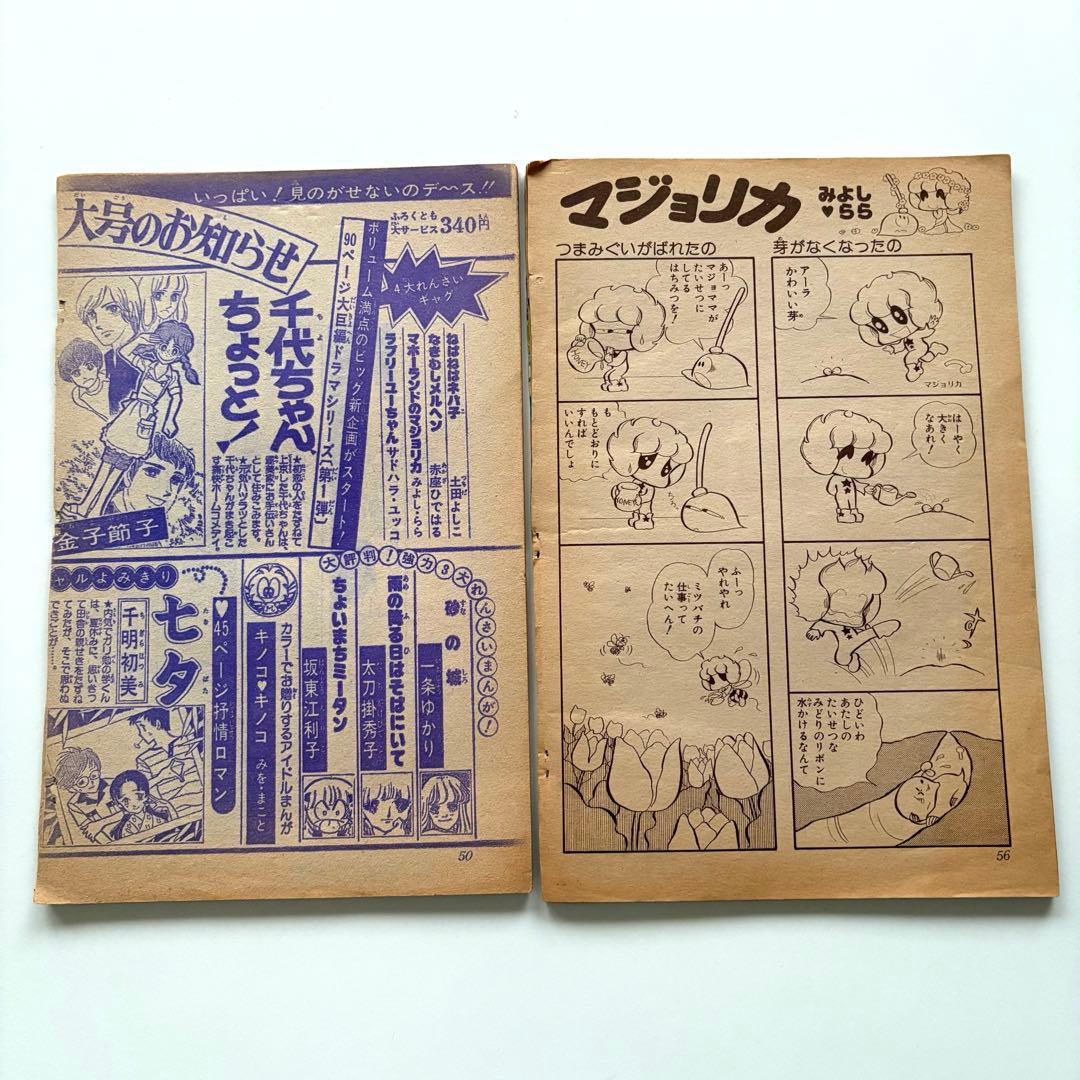 いっぱい!見のがせないのデ〜ス!!
大号のお知らせ
ふろくとも
大サービス340円
4大れんさい
ギャグ
ねばねばネバ子 土田よしこ
なきむしメルヘン 赤座ひではる
マホーランドのマジョリカ みよし・らら
ラブリーユーちゃん サドハラ・ユッコ
ボリューム満点のビッグ新企画がスタート!
90ページ大巨編ドラマシリーズ〔第1弾〕
千代ちゃん、
ちょっと!
★初恋の人をたずねて
上京した千代ちゃんは、
として住みこみます。
★元気ハツラツとした
千代ちゃんがまき起こ
す痛快ホームコメディ。
金子節子
大評判!強力3大れんさいまんが!
砂の城
一条ゆかり
雨の降る日はそばにいて
太刀掛秀子
ちょいまちミータン
坂東江利子
カラーでお贈りするアイドルまんが
キノコ♥キノコ みを・まこと
♥45ページ抒情ロマン
ャルよみきり
七夕
千明初美
★内気でガリ勉の学くん
は、夏休みに、思いきっ
て田舎の親せきをたずね
てみたが、そこで思わぬ
できごとが……。
50
マジョリカ
みよし
♥らら
芽がなくなったの
アーラ
かわいい芽
マジョリカ
はーやく
大きく
なあれ!
ひどいわ
あたしの
たいせつな
みどりのリボンに
水かけるなんて
つまみぐいがばれたの
あーっ
マジョママが
たいせつに
してる
はちみつを!
HONEY
も
もとどおりに
すれば
いいんでしょ
HONEY
ふーっ
やれやれ
ミツバチの
仕事って
たいへん!
56